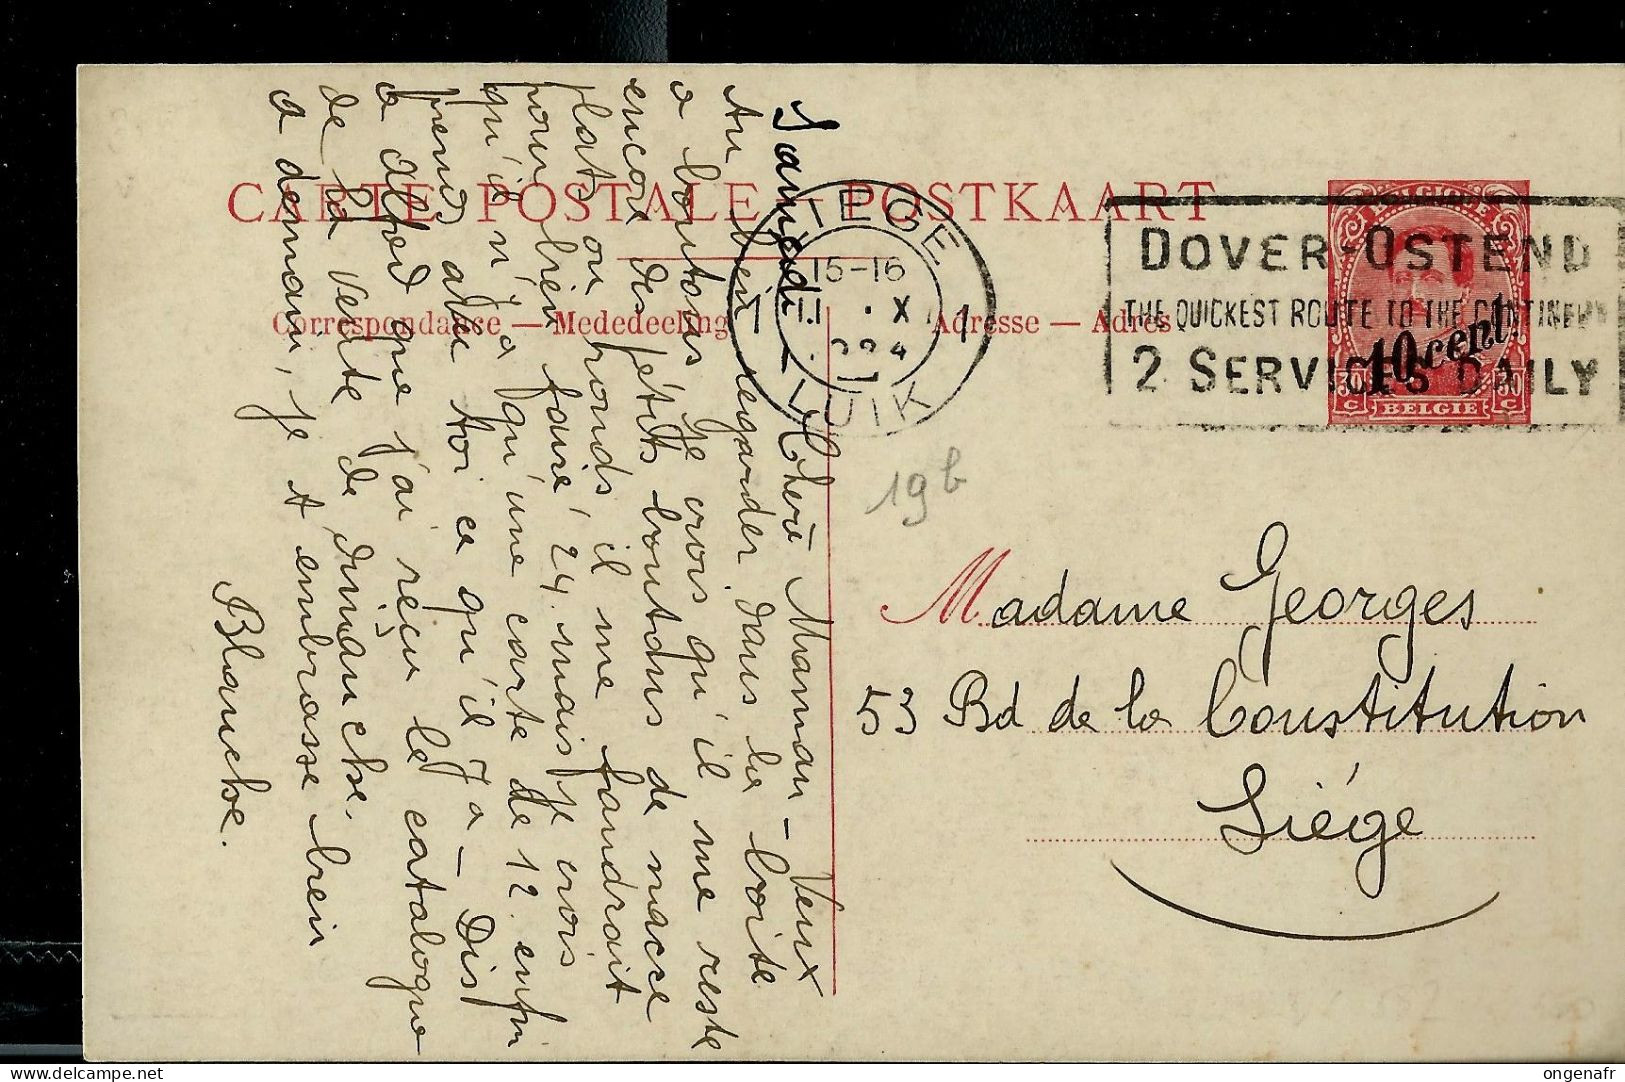 CARTE POSTALE — POSTKAART
Correspondance — Mededeeling
Adresse — Adres
LIEGE
15-16
11 . X
1
1
LUIK
DOVER-OSTEND
THE QUICKEST ROUTE TO THE CONTINENT
2 SERVICES DAILY
BELGIQUE
10 cent.
30 C
30 C
BELGIE
19 b
Madame Georges
53 Bd de la Constitution
Liége
Samedi — Chère Maman — Veux
tu bien regarder dans la boite
a boutons je crois qu'il me reste
encore des petits boutons de nacre
plats ou ronds il me faudrait
pour bien faire 24. mais je crois
qu'il n'y a qu'une carte de 12. enfin
prends avec toi ce qu'il y a — Dis
a Alfred que j'ai reçu le catalogue
de la vente de dimanche.
a demain, je t embrasse bien
Blanche.
ongenafr